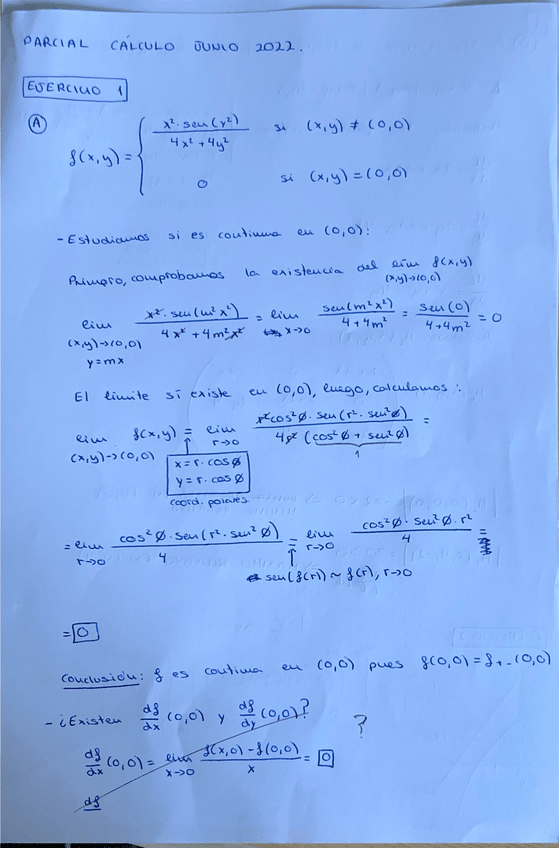 PARCIAL CÁLCULO JUNIO 2022.
EJERCICIO 1
A
f(x,y) = { x²·sen(y²) / 4x²+4y² si (x,y) ≠ (0,0)
0 si (x,y) = (0,0)
- Estudiamos si es continua en (0,0):
Primero, comprobamos la existencia del lim f(x,y) (x,y)→(0,0)
lim (x,y)→(0,0) y=mx x²·sen(m²x²) / 4x²+4m²x² = lim x→0 sen(m²x²) / 4+4m² = sen(0) / 4+4m² = 0
El límite sí existe en (0,0), luego, calculamos:
lim (x,y)→(0,0) f(x,y) = lim r→0 r²cos²Ø·sen(r²·sen²Ø) / 4r²(cos²Ø+sen²Ø) =
1
x = r·cosØ
y = r·cosØ
coord. polares
= lim r→0 cos²Ø·sen(r²·sen²Ø) / 4 = lim r→0 cos²Ø·sen²Ø·r² / 4 =
sen(f(r)) ~ f(r), r→0
= 0
Conclusión: f es continua en (0,0) pues f(0,0) = f+-(0,0)
- ¿Existen df/dx (0,0) y df/dy (0,0)?
?
df/dx (0,0) = lim x→0 f(x,0) - f(0,0) / x = 0
df